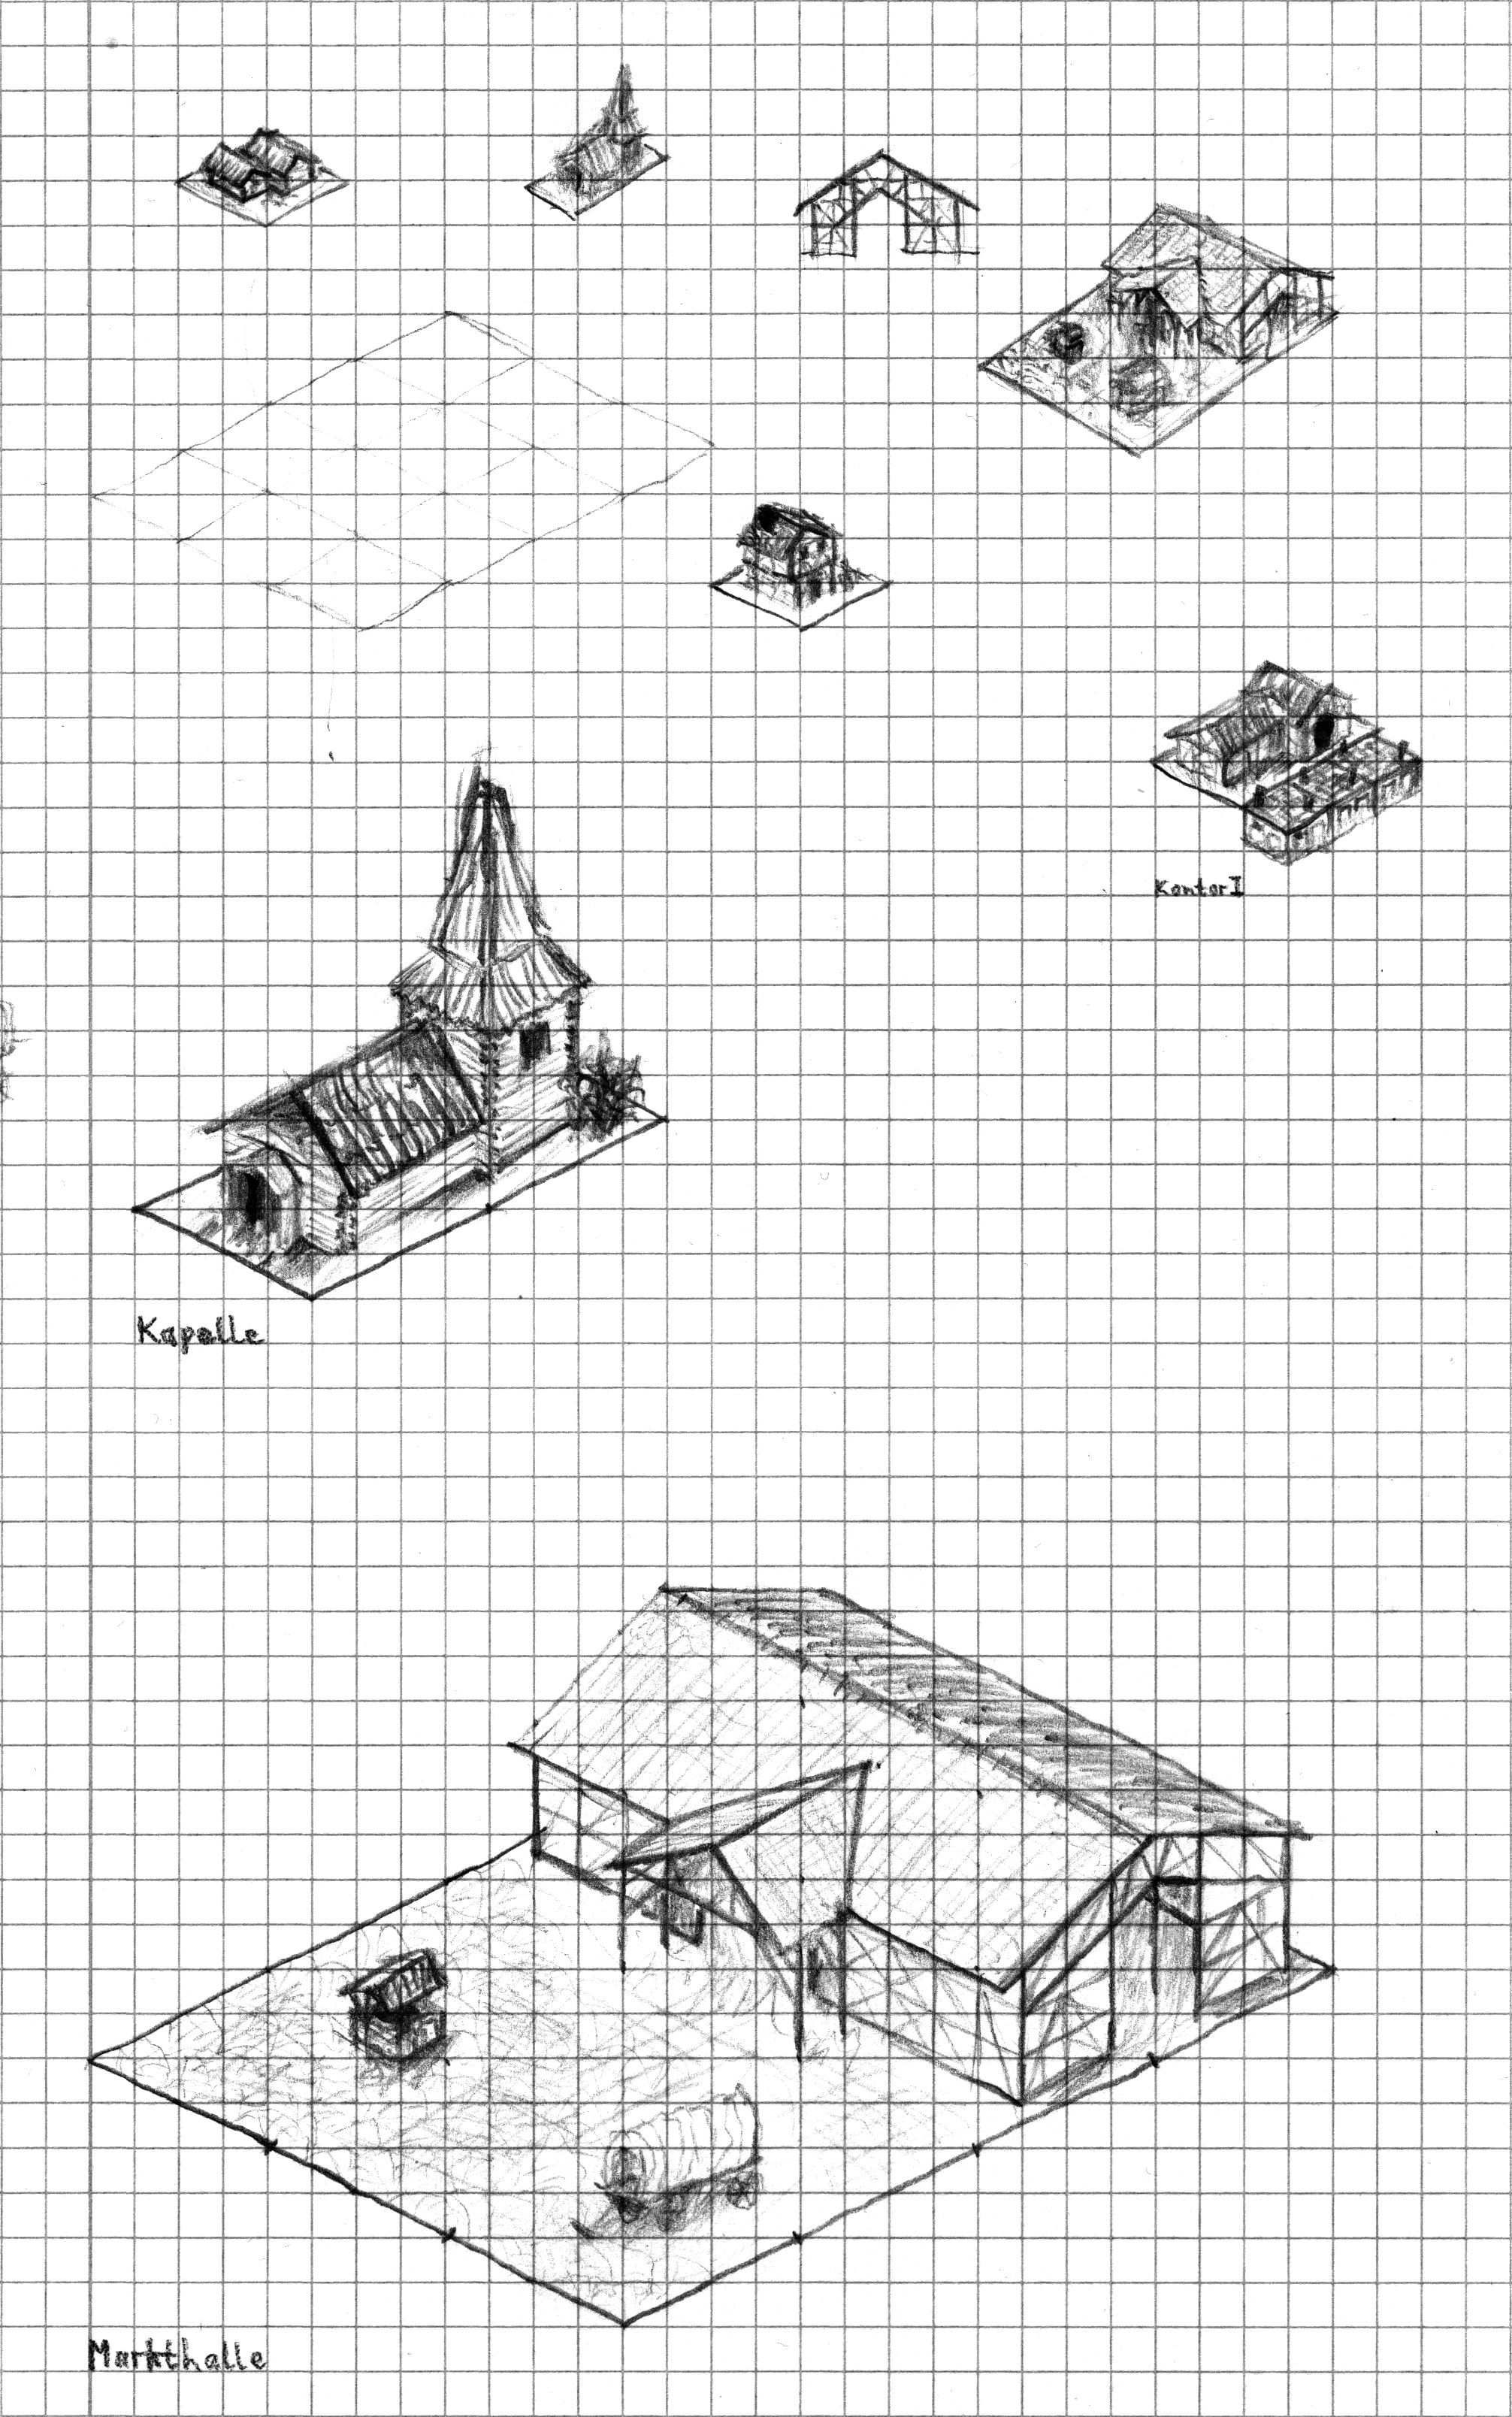 Kontor I
Kapelle
Markthalle